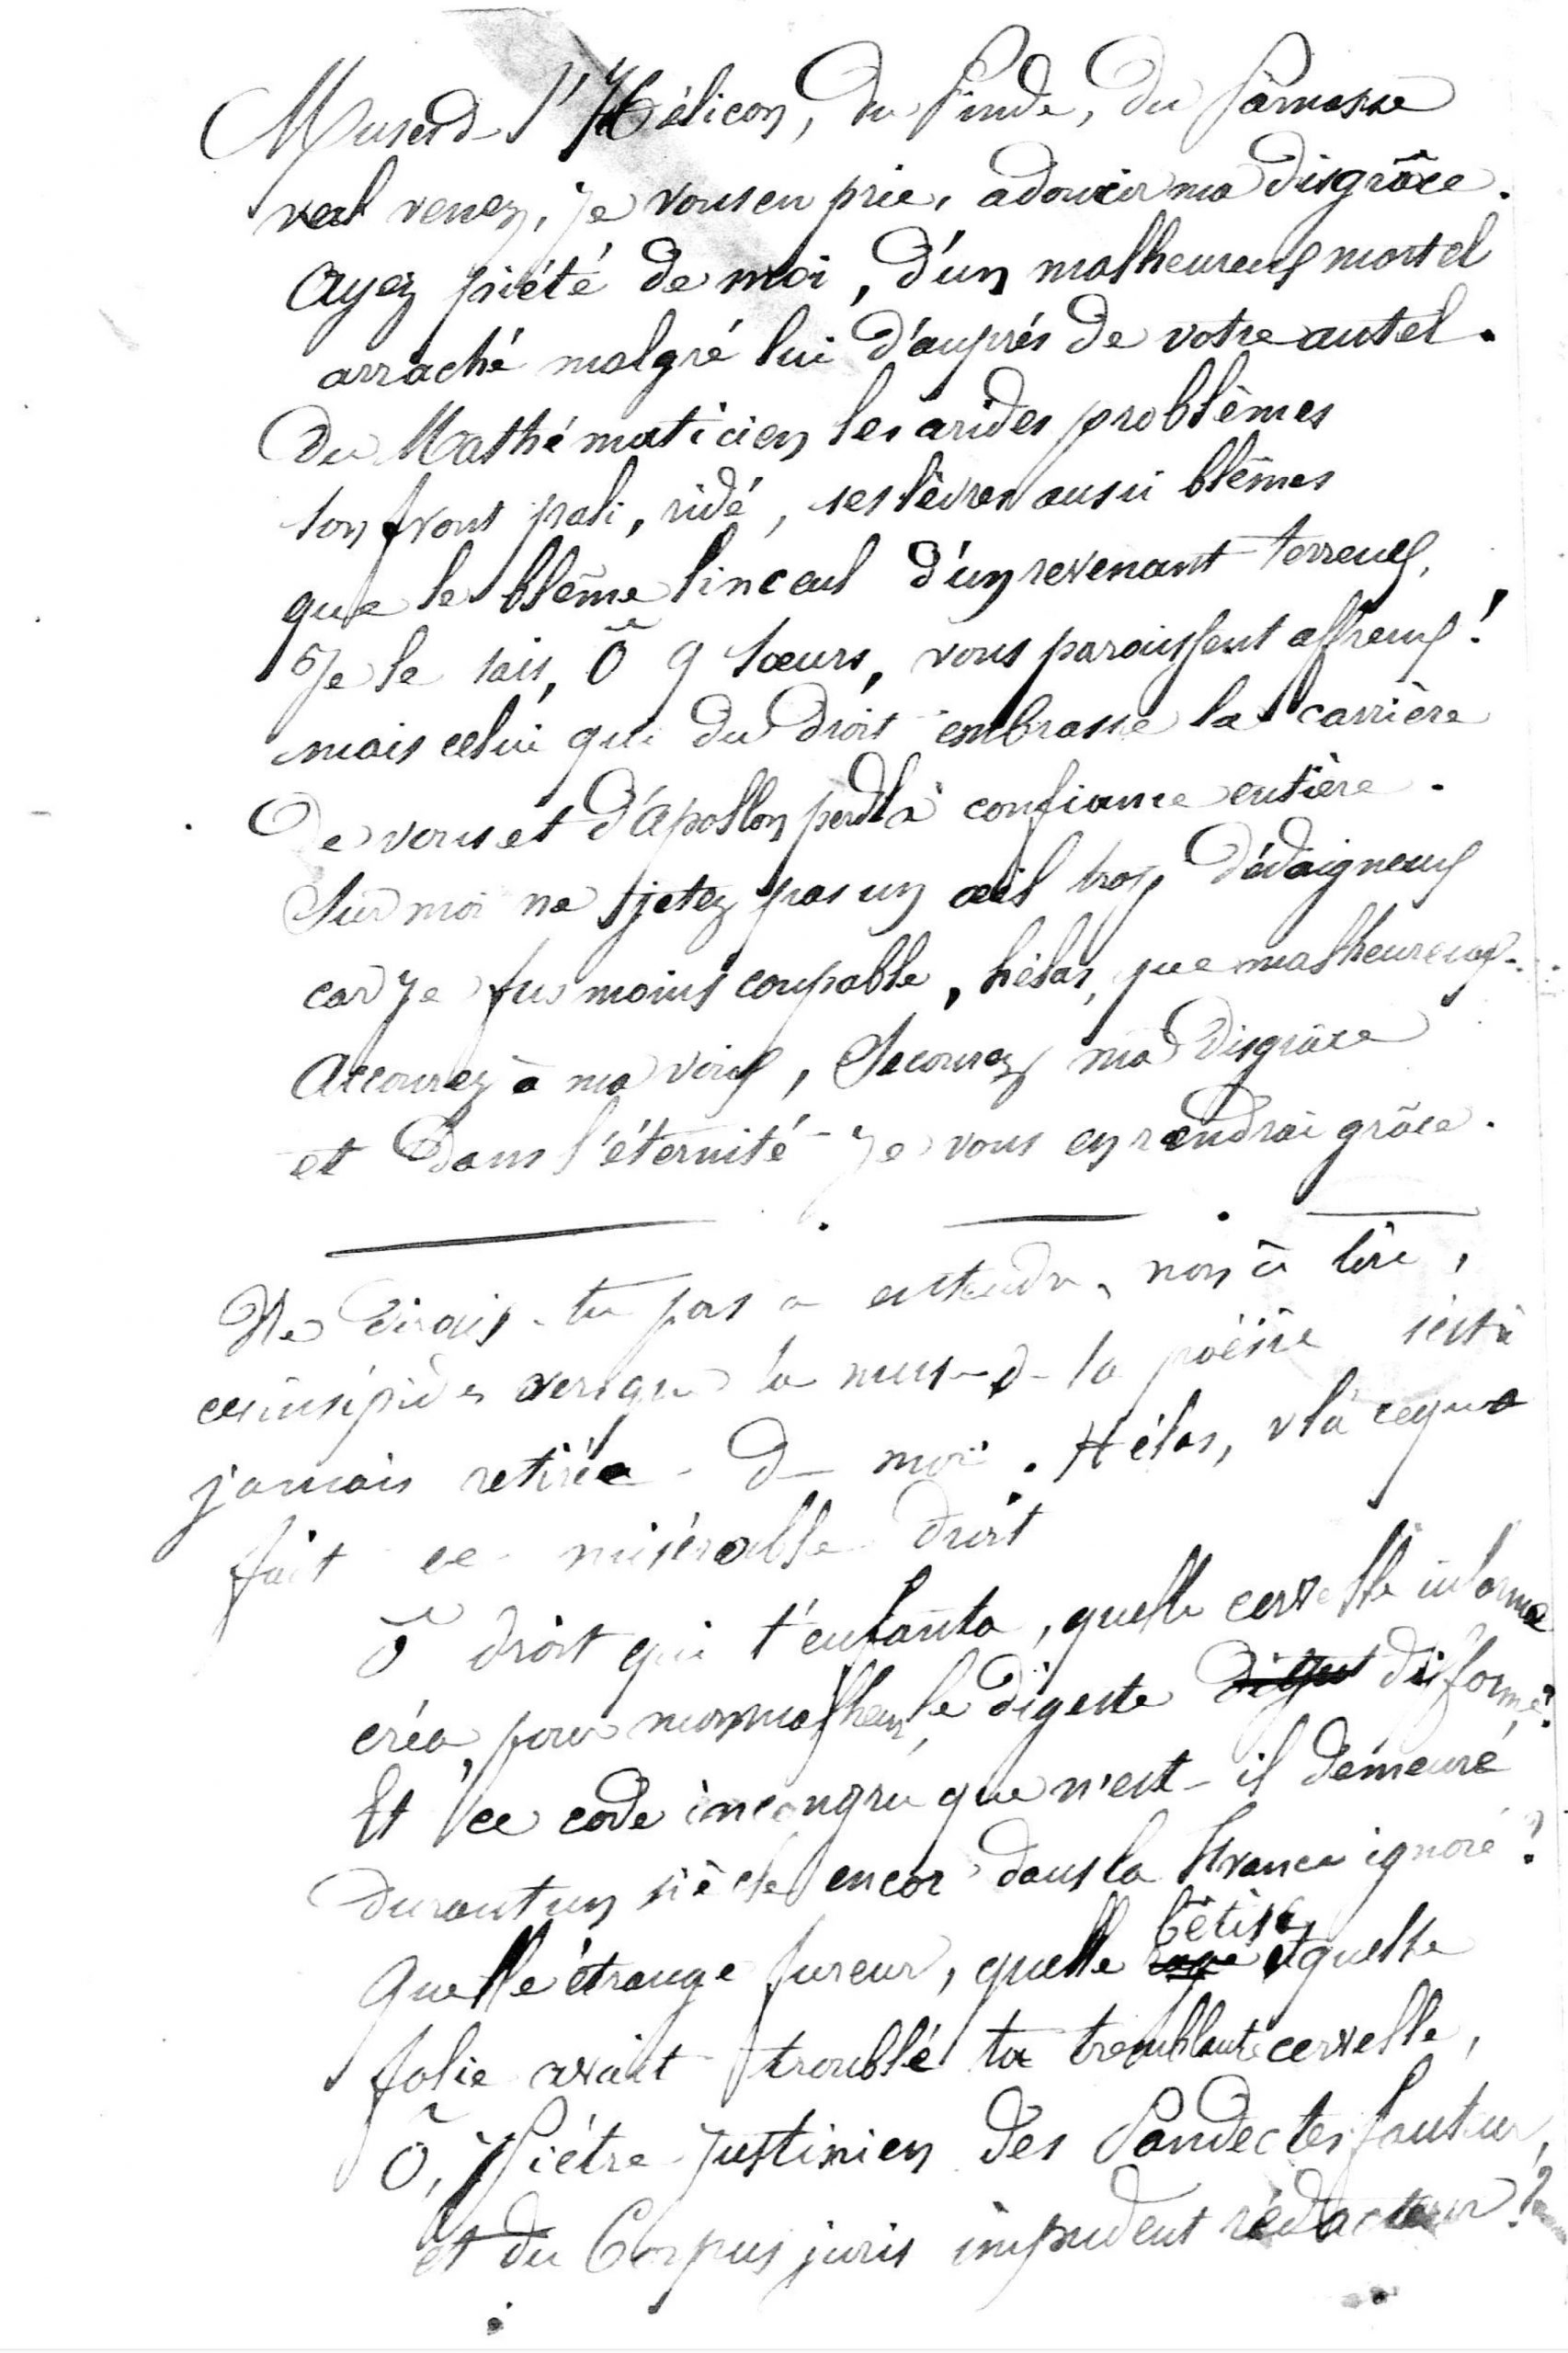 Muses d_ l'Hélicon, du Pinde, du Parnasse
venez, je vous en prie, adoucir ma disgrâce.
Ayez piété de moi, d'un malheureux mortel
arraché malgré lui d'auprés de votre autel.
Du Mathématicien les arides problèmes
son front pali, ridé, ses lèvres aussi blêmes
que le blême linceul d'un revenant terreux,
Je le sais, Ô 9 sœurs, vous paraissent affreux!
mais celui qui du droit embrasse la carrière
De vous et d'Apollon perd la confiance entière.
Sur moi ne jetez pas un œil trop dédaigneux
car je fus moins coupable, hélas, que malheureux...
Accourez à ma voix, Secourez ma disgrâce
et dans l'éternité je vous en rendrai grâce.
Ne dirais-tu pas a entendre, non à lire,
ces insipides vers que la muse d_ la poësie s'est à
jamais retirée d_ moi. Hélas, vlà ce qu'a
fait ce misérable droit
Ô droit qui t'enfanta, quelle cervelle informe
créa, pour mon malheur, le digeste difforme?
Et ce code incongru que n'est-il demeuré
durant un siècle encor dans la France ignoré?
Quelle étrange fureur, quelle bêtise et quelle
folie avait troublé ta tremblante cervelle,
Ô, Piètre Justinien des Pandectes fauteur,
et du Corpus juris impudent rédacteur?